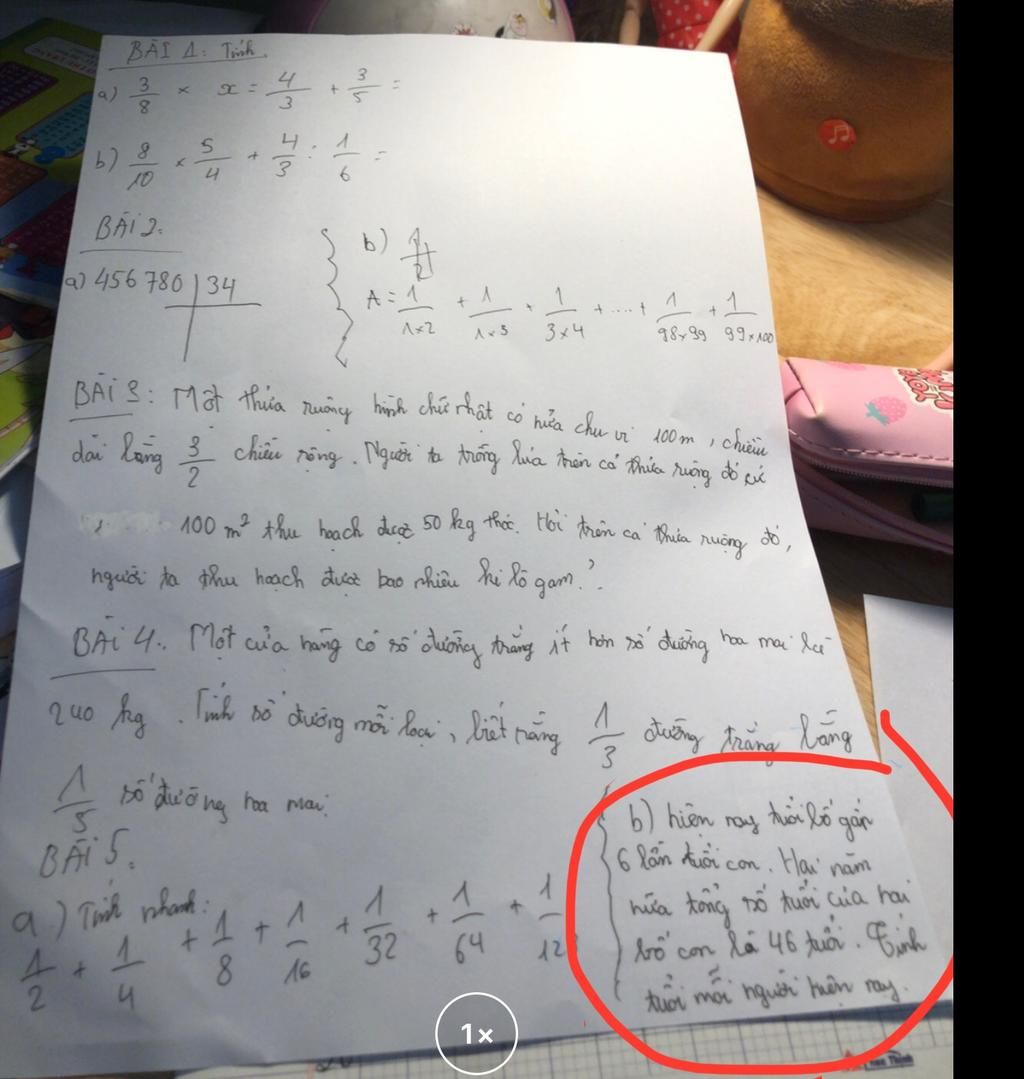 BÀI 1: Tính
a) 3/8 × x = 4/3 + 3/5 =
b) 8/10 × 5/4 + 4/3 : 1/6 =
BÀI 2:
a) 456 780 | 34
b) 1/2
A = 1/1×2 + 1/1×3 + 1/3×4 + ....+ 1/98×99 + 1/99×100
BÀI 3: Một thửa ruộng hình chữ nhật có nửa chu vi 100m, chiều
dài bằng 3/2 chiều rộng. Người ta trồng lúa trên cả thửa ruộng đó cứ
100 m² thu hoạch được 50 kg thóc. Hỏi trên cả thửa ruộng đó,
người ta thu hoạch được bao nhiêu ki lô gam?
BÀI 4: Một cửa hàng có số đường trắng ít hơn số đường hoa mai là
240 kg. Tính số đường mỗi loại, biết rằng 1/3 đường trắng bằng
1/5 số đường hoa mai.
BÀI 5:
a) Tính nhanh:
1/2 + 1/4 + 1/8 + 1/16 + 1/32 + 1/64 + 1/12
b) hiện nay tuổi bố gấp
6 lần tuổi con. Hai năm
nữa tổng số tuổi của hai
bố con là 46 tuổi. Tính
tuổi mỗi người hiện nay.
1×